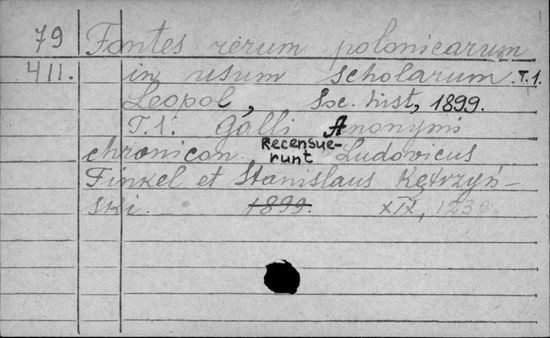 79 Fontes rerum polonicarum
411. in usum scholarum. T.1.
Leopol, Soc. hist, 1899.
T.1. Galli Anonymi
chronicon. Recensue-
runt Ludovicus
Finkel et Stanislaus Kętrzyń-
ski. 1899. XIX, 123